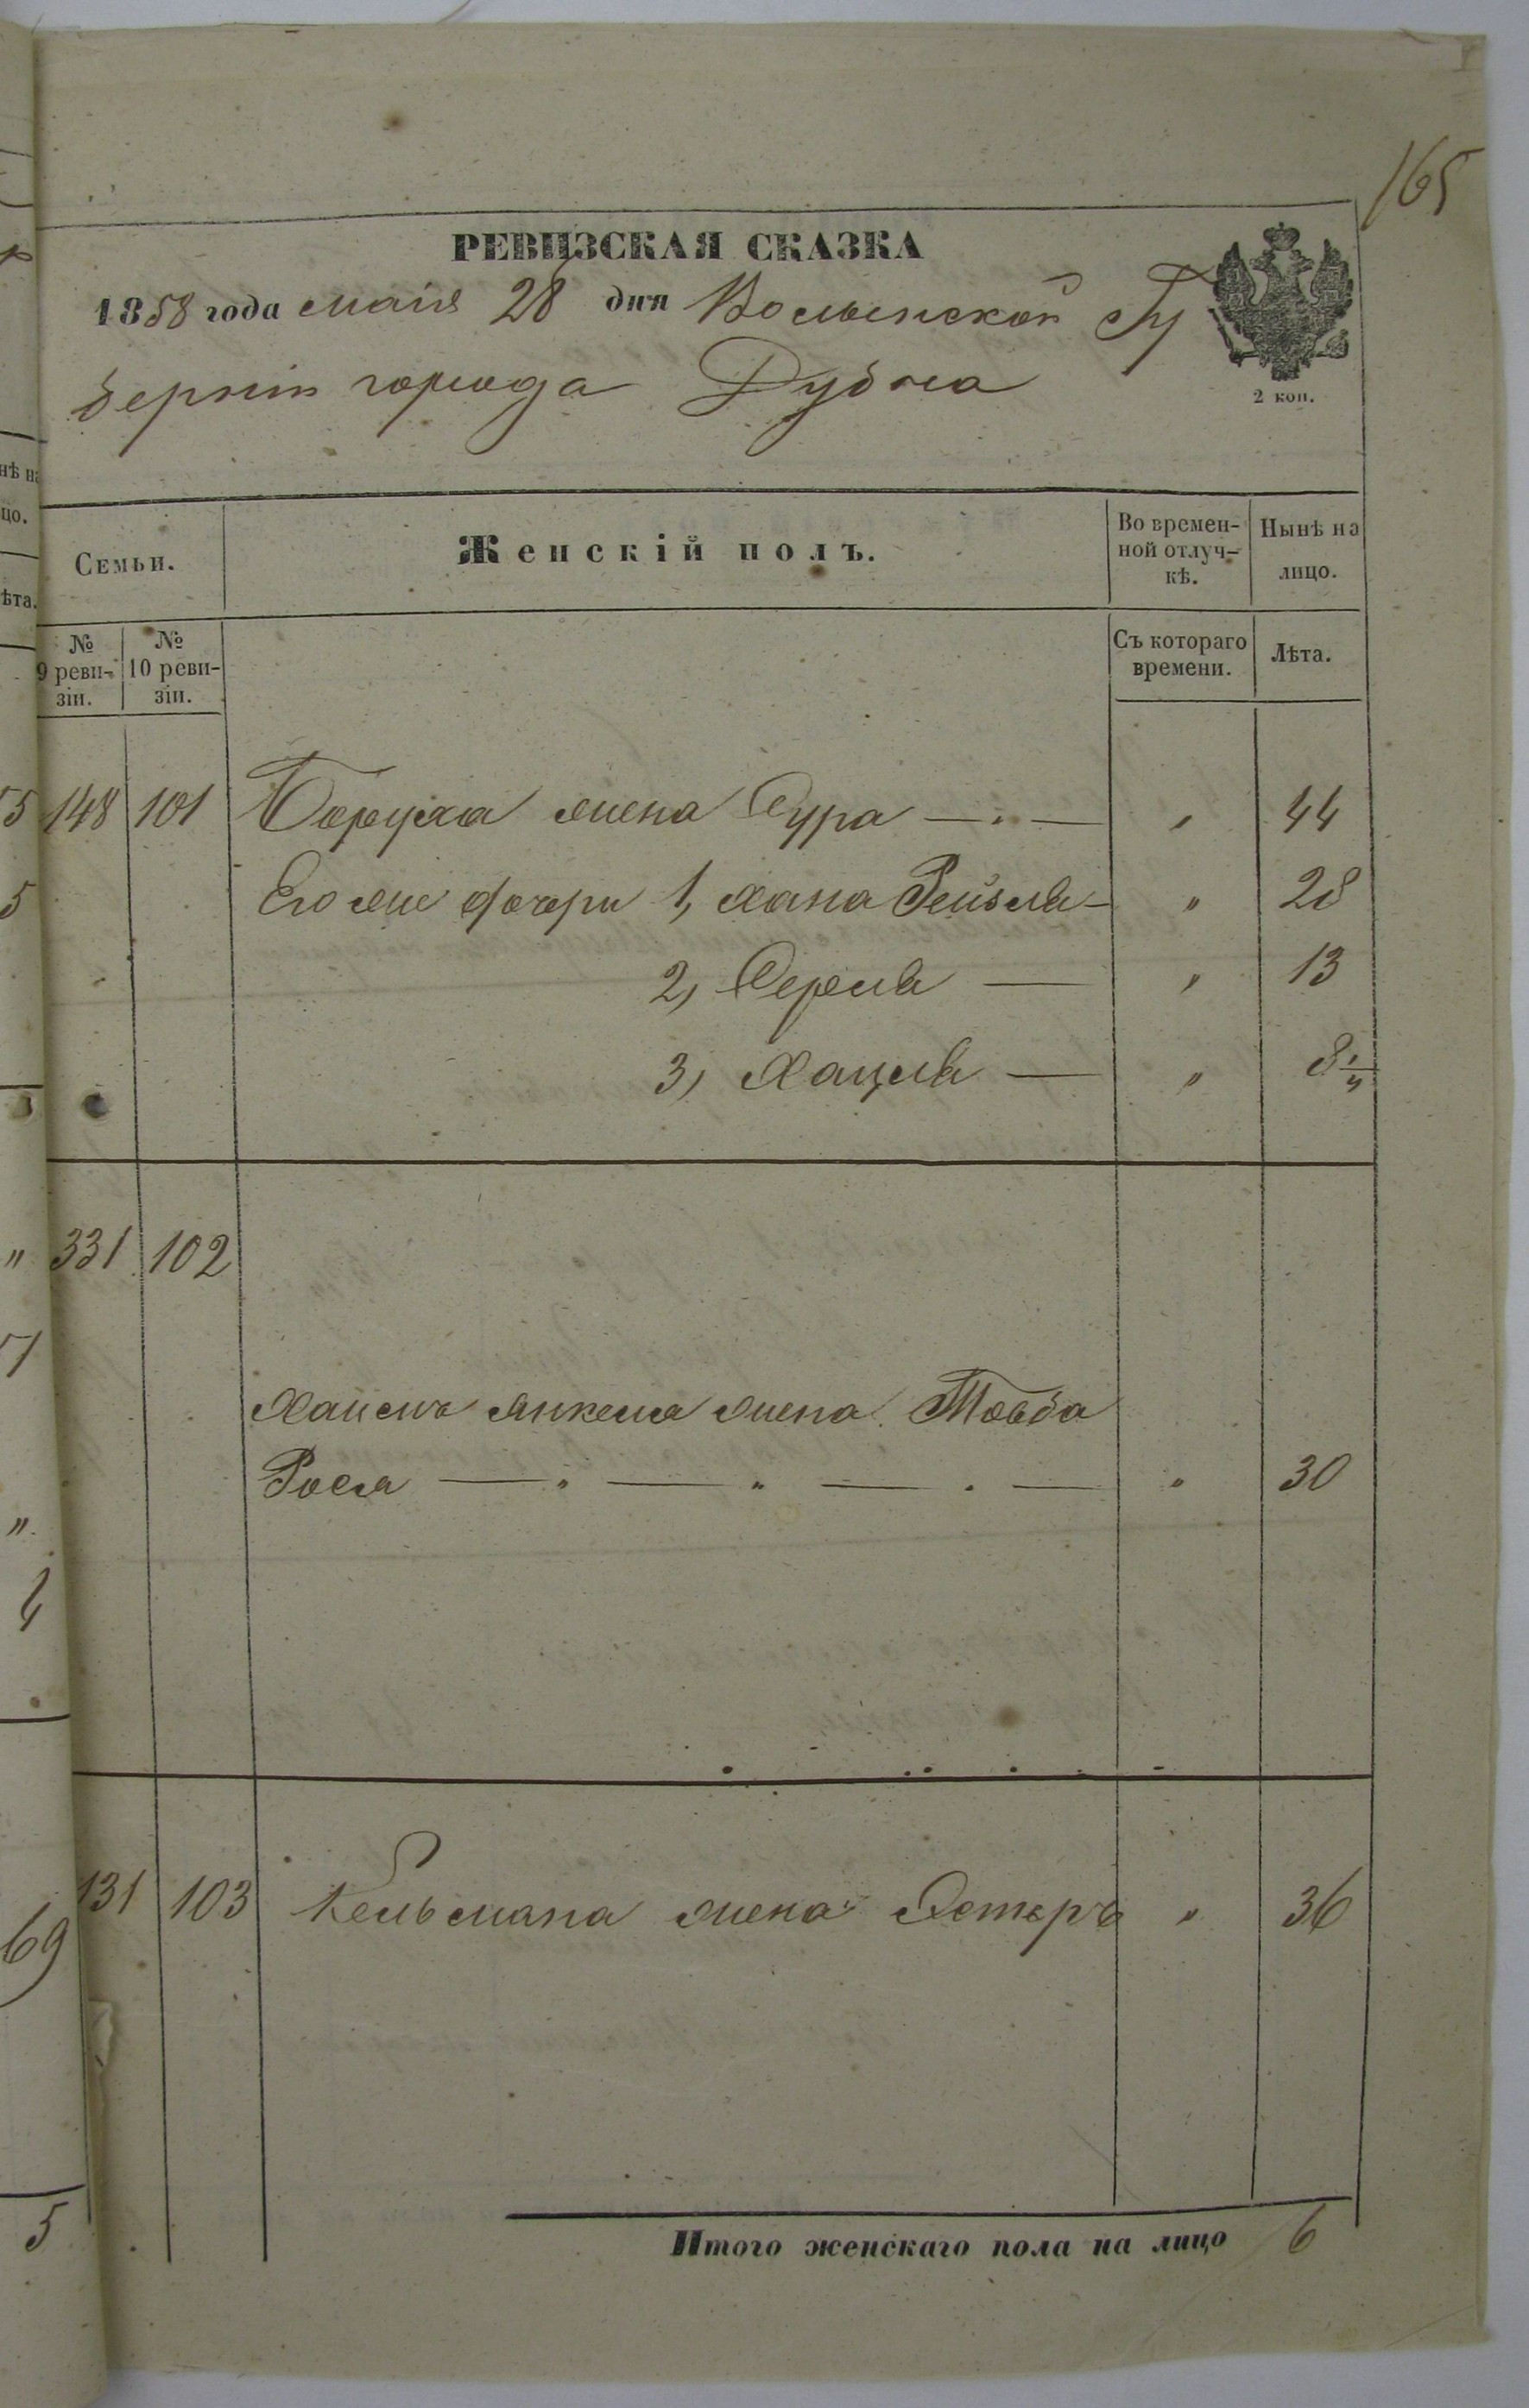 165
РЕВИЗСКАЯ СКАЗКА
1858 года маія 28 дня Волынской Гу
берніи города Дубна
2 коп.
Семьи.
Женскій полъ.
Во времен-
ной отлуч-
кѣ.
Нынѣ на
лицо.
№
9 реви-
зіи.
№
10 реви-
зіи.
Съ котораго
времени.
Лѣта.
148 101 Боруха жена Сура — " 44
Его же дочери 1, Хана Рейзля — " 28
2, Перля — " 13
3, Хацля — " 8 1/4
331 102
Хаимъ Янкеля жена Товба
Рося — " — " — . — " 30
131 103 Кельмана жена Эстеръ " 36
Итого женскаго пола на лицо 6